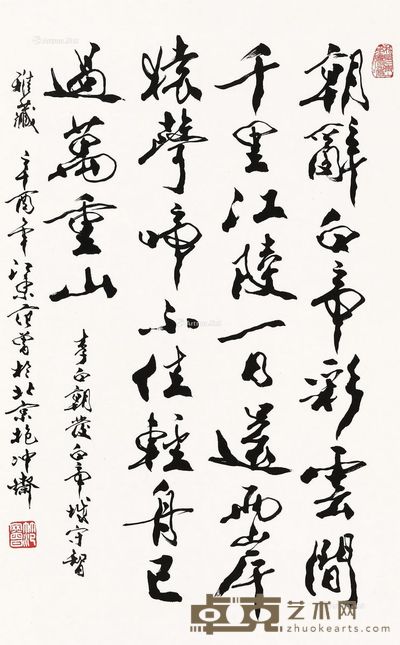 朝辭白帝彩雲間
千里江陵一日還兩岸
猿聲啼不住輕舟已
過萬重山
李白朝發白帝城守智
雅藏 辛酉年江東范曾於北京抱冲齋
卓克艺术网
zhuokearts.com